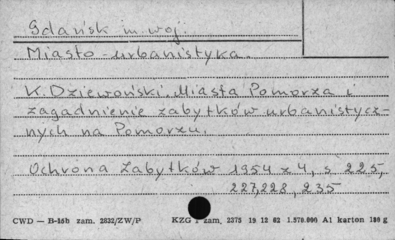 Gdańsk m. woj.
Miasto - urbanistyka.
K. Dziewoński. Miasta Pomorza i
zagadnienie zabytków urbanistycz-
nych na Pomorzu.
Ochrona Zabytków 1954 z 4, s 225,
227,228, 235
CWD — B-15b zam. 2832/ZW/P KZG 1 zam. 2375 15 12 82 1.570.000 A1 karton 180 g